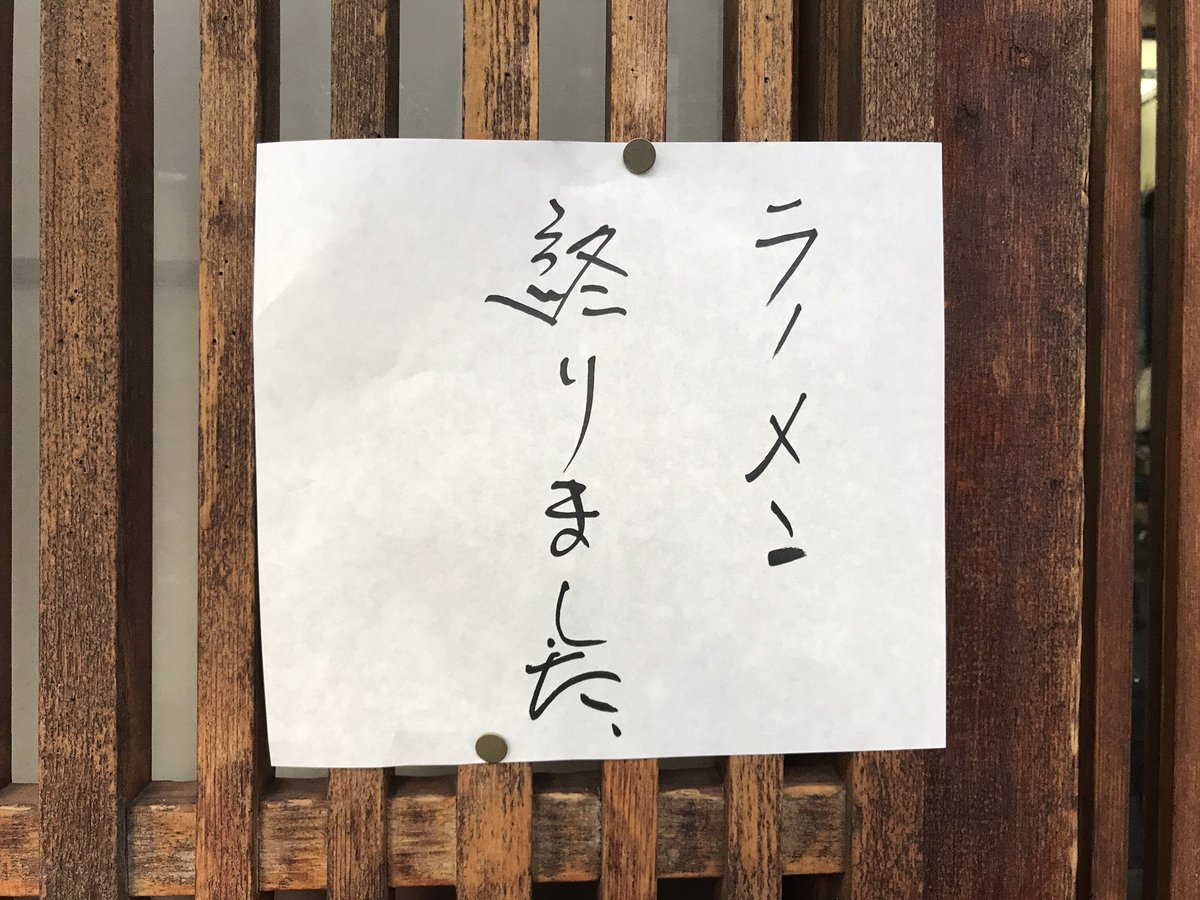 ラーメン
終りました、